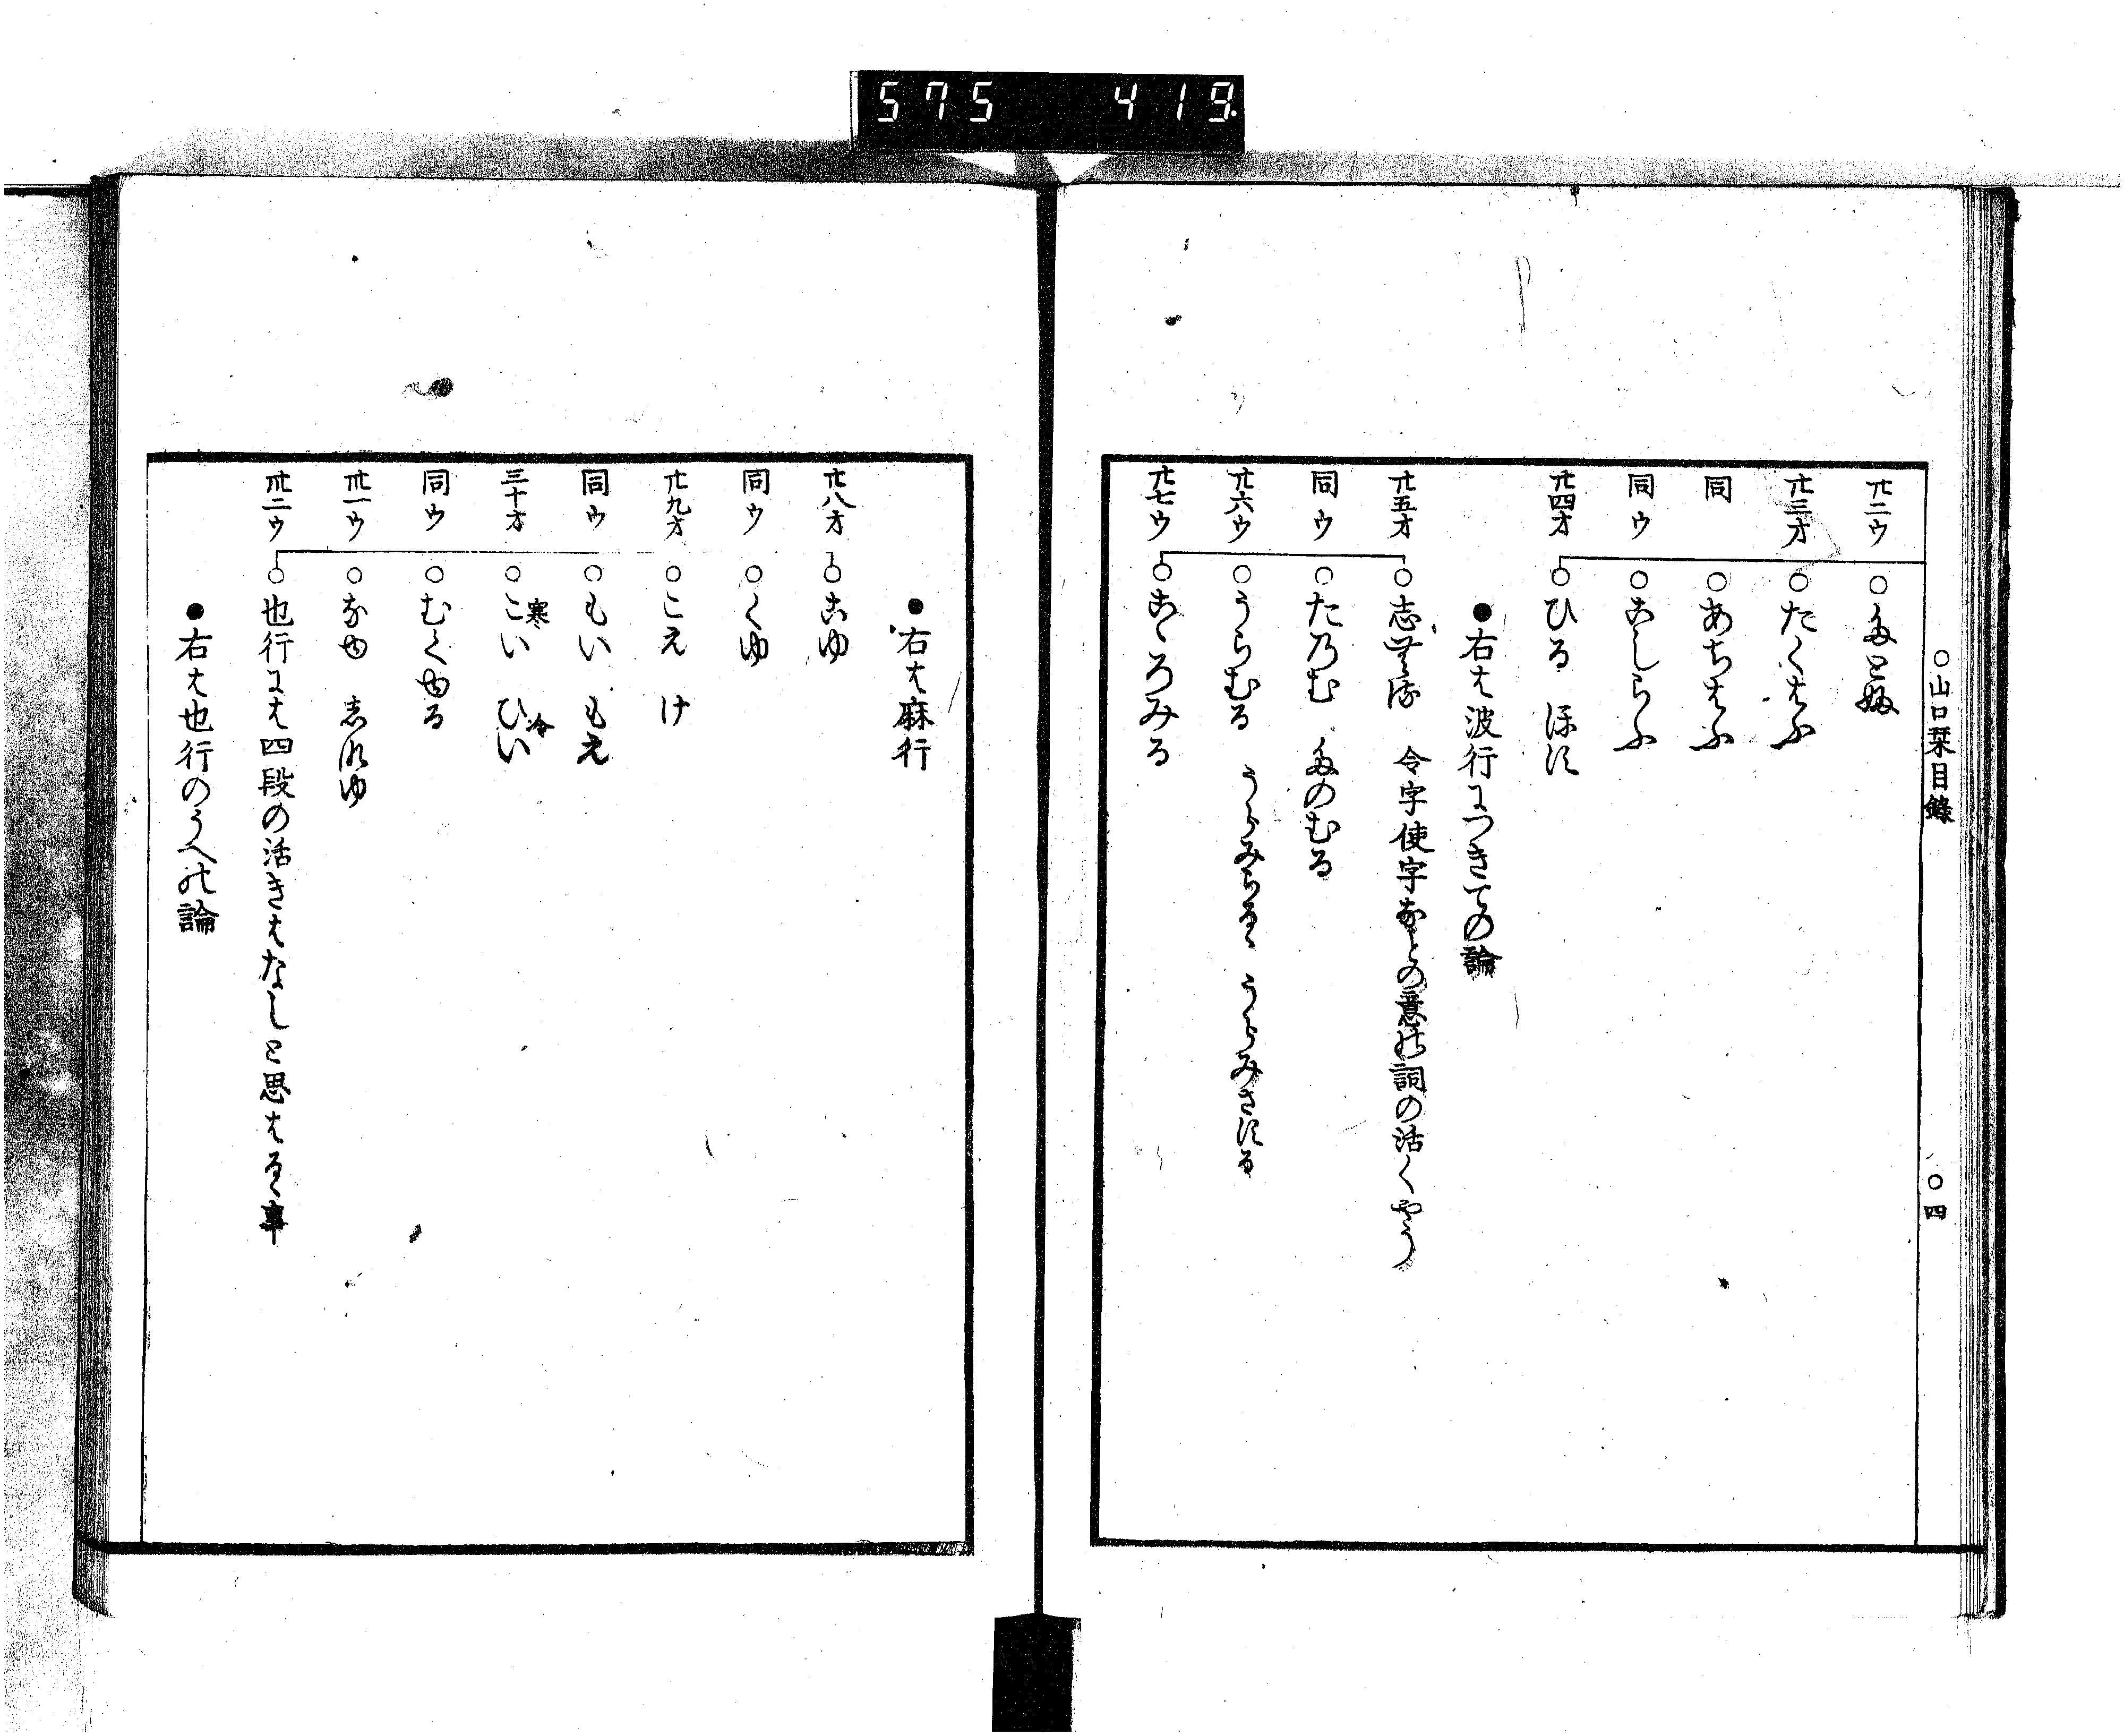 ○山口栞目録 ○四
廿二ウ ○たとふ
廿三オ ○たくはふ
同 ○あちはふ
同ウ ○こしらふ
廿四オ ○ひる ほす
●右は波行につきての論
廿五オ ○志むる 令字使字なとの意の詞の活くやう
同ウ ○たのむ たのむる
廿六ウ ○うらむる うらみらるゝ うらみさする
廿七ウ ○こゝろみる
●右は麻行
廿八オ ○こゆ
同ウ ○くゆ
廿九オ ○こえ け
同ウ ○もい もえ
三十オ ○こい 寒 ひい 冷
同ウ ○むくゆる
卅一ウ ○なゆ
卅二ウ ○也行には四段の活きはなしと思はるゝ事
●右は也行のうへの論
575 419